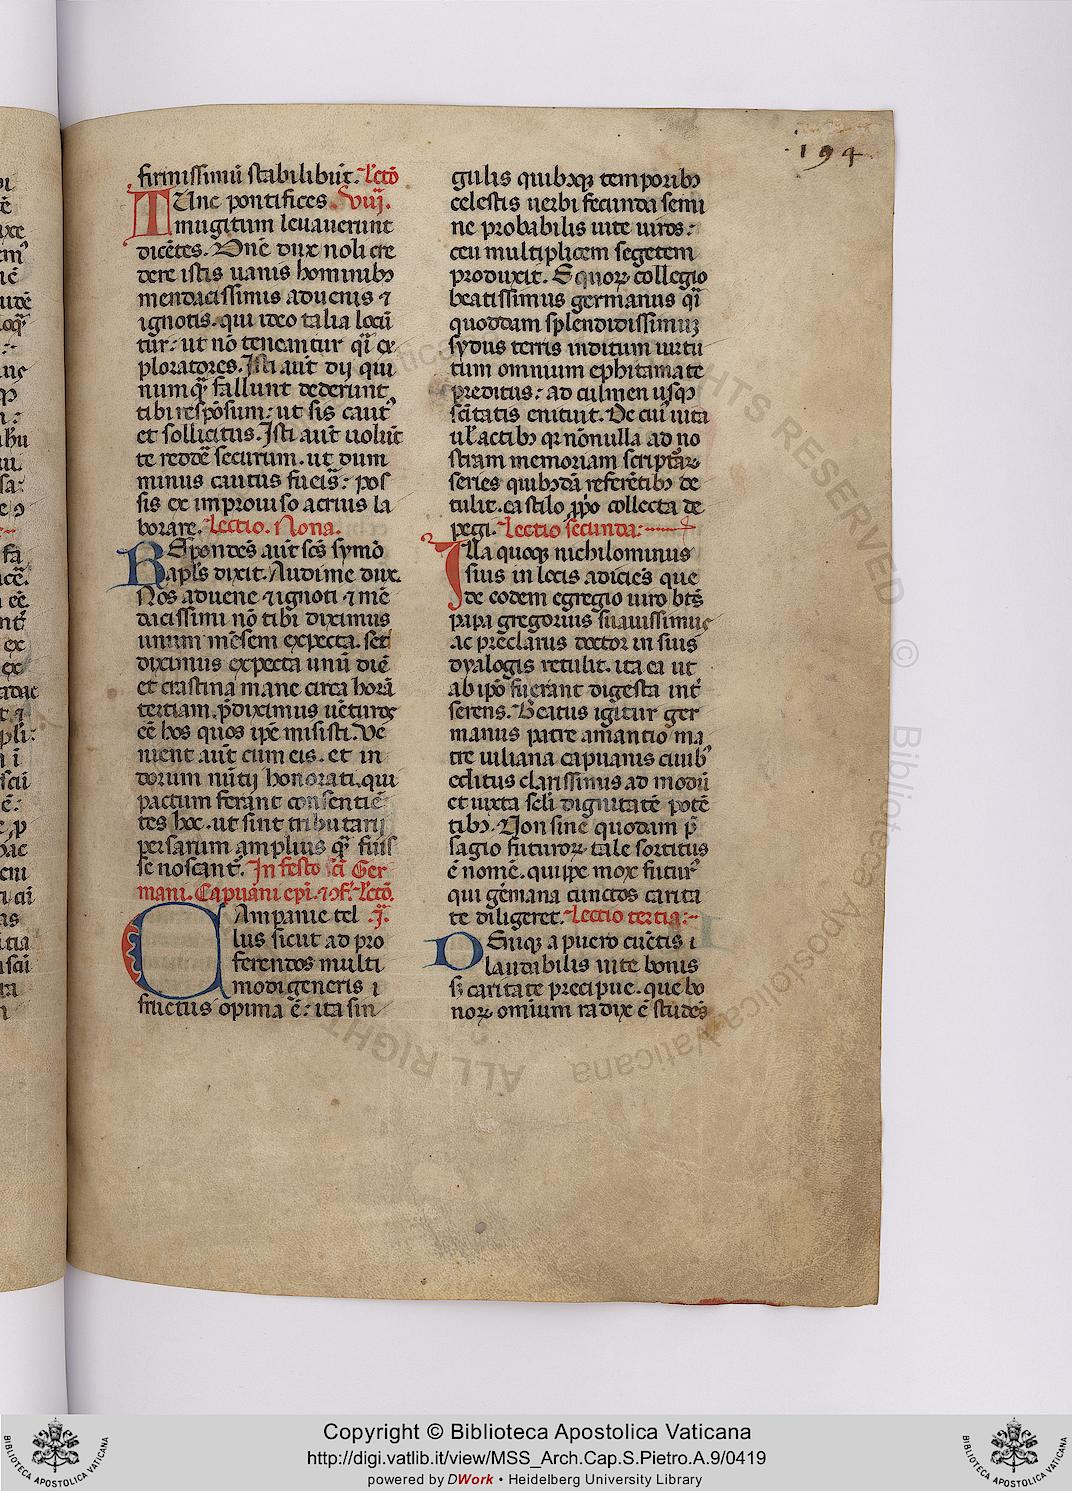 194
firmissimū stabilibūt. Lectō
TUnc pontifices viij.
mugitum leuauerunt
dicētes. Dnē dux noli cre
dere istis uanis hominibꝰ
mendacissimis aduenis ⁊
ignotis. qui ideo talia locū
tur: ut nō teneantur qͥ ex
ploratores. Isti aūt dij qui
numqᷓ fallunt dederunt
tibi respōsum: ut sis cautꝰ
et sollicitus. Isti aūt uolūt
te reddē securum. ut dum
minus cautus fueīs: pos
sis ex improuiso acrius la
borare. Lectio. Nona.
REspondēs aūt scs symō
apls dixit. Audi me dux.
Nos aduene ⁊ ignoti ⁊ mē
dacissimi nō tibi diximus
unum mēsem expecta. set
diximus expecta unū diē
et crastina mane circa horā
tertiam. p̄diximus uēturos
eē hos quos ipē misisti. Ve
nient aūt cum eis. et in
dorum nūtij honorati. qui
pactum ferant consentiē
tes hoc. ut sint tributarij
persarum amplius qᷓ fuis
se noscant̄. In festo scī Ger
mani. Capuani epī. ⁊ ɔf. Lectō.
CAmpanie tel .j.
lus sicut ad pro
ferendos multi
modi generis i
fructus opima ē: ita sin
gulis quibꝰqꝫ temporibꝰ
celestis uerbi fecunda semi
ne probabilis uite uiros:
ceu multiplicem segetem
produxit. E quorꝝ collegio
beatissimus germanus qͥ
quoddam splendidissimuꝫ
sydus terris inditum uirtu
tum omnium ephitamate
preditus: ad culmen usqꝫ
scītatis enituit. De cuiꝰ uita
ul̄ actibꝰ qꝛ nōnulla ad no
stram memoriam scriptaꝝ
series quibꝰdā referētibꝰ de
tulit. ea stilo ꝓpo collecta de
pegi. Lectio secunda:
Illa quoqꝫ nichilominus
suis in locis adiciēs que
de eodem egregio uiro btūs
papa gregorius suauissimus
ac preclarus doctor in suis
dyalogis retulit. ita ea ut
ab ipō fuerant digesta int̄
serens. Beatus igitur ger
manus patre amantio ma
tre uiliana capuanis ciuibꝰ
editus clarissimus ad modū
et iuxta seli dignitatē potē
tibꝰ. Non sine quodam p̄
sagio futurorꝝ tale sortitus
ē nomē. qui ipē mox futurꝰ
qui gēmana cunctos carita
te diligeret. Lectio tertia:
DEniqꝫ a puero cūctis i
laudabilis uite bonis
sꝫ caritate precipue. que bo
norꝝ omium radix ē studēs
Copyright © Biblioteca Apostolica Vaticana
http://digi.vatlib.it/view/MSS_Arch.Cap.S.Pietro.A.9/0419
powered by DWork • Heidelberg University Library